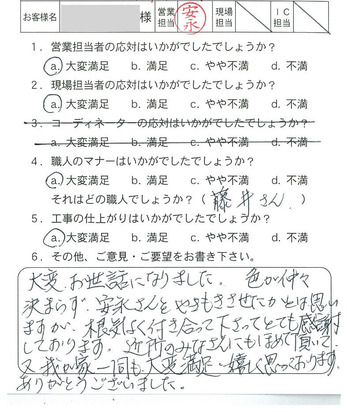 お客様名 様 営業担当 安永 現場担当 IC担当
1. 営業担当者の応対はいかがでしたでしょうか?
a. 大変満足 b. 満足 c. やや不満 d. 不満
2. 現場担当者の応対はいかがでしたでしょうか?
a. 大変満足 b. 満足 c. やや不満 d. 不満
3. コーディネーターの応対はいかがでしたでしょうか?
a. 大変満足 b. 満足 c. やや不満 d. 不満
4. 職人のマナーはいかがでしたでしょうか?
a. 大変満足 b. 満足 c. やや不満 d. 不満
それはどの職人でしょうか?( 藤井さん )
5. 工事の仕上がりはいかがでしたでしょうか?
a. 大変満足 b. 満足 c. やや不満 d. 不満
6. その他、ご意見・ご要望をお書き下さい。
大変お世話になりました. 色が仲々
決まらず. 安永さんをやきもきさせたかとは思い
ますが. 根気よく付き合って下さってとても感謝
しております. 近所のみなさんにもほめて頂いて.
又我が家一同も大変満足・嬉しく思っております.
ありがとうございました.